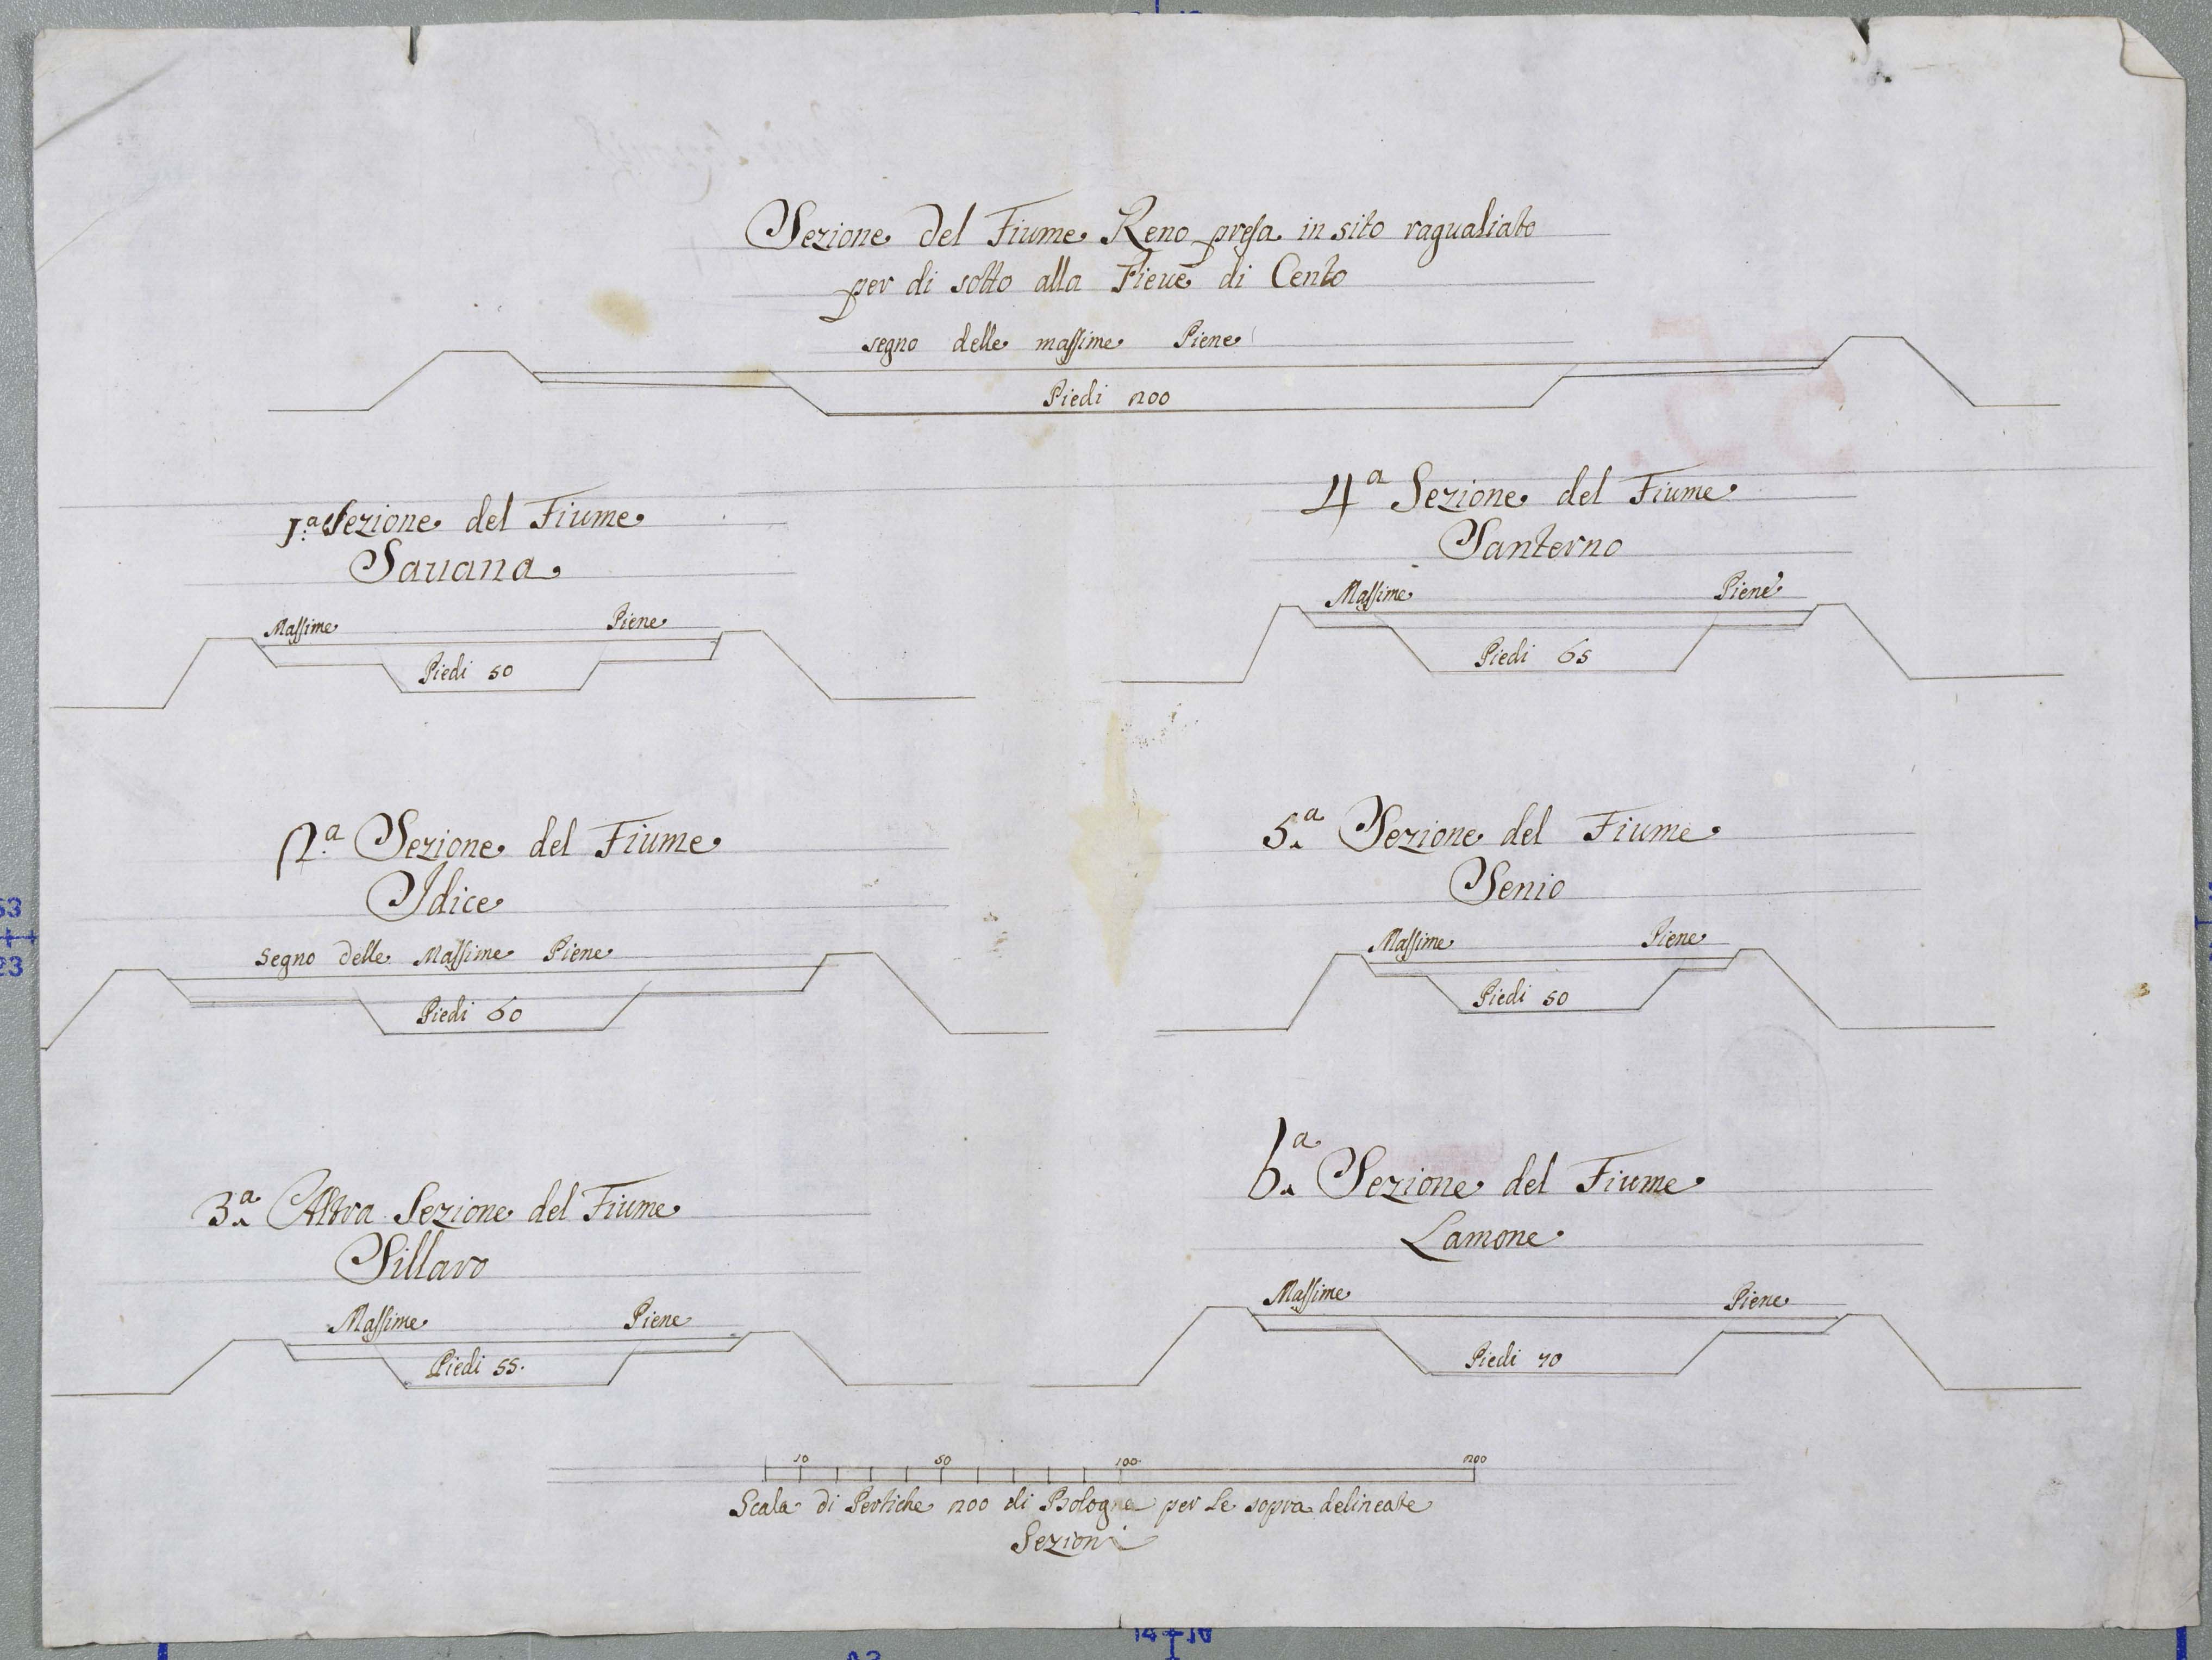 Sezione del Fiume Reno presa in sito ragualiato
per di sotto alla Pieue di Cento
segno delle massime Piene
Piedi 200
1.a Sezione del Fiume
Sauana
Massime Piene
Piedi 50
2.a Sezione del Fiume
Idice
Segno delle Massime Piene
Piedi 60
3.a Altra Sezione del Fiume
Sillaro
Massime Piene
Piedi 55.
4a Sezione del Fiume
Santerno
Massime Piene
Piedi 65
5.a Sezione del Fiume
Senio
Massime Piene
Piedi 50
6.a Sezione del Fiume
Lamone
Massime Piene
Piedi 70
10 50 100 200
Scala di Pertiche 200 di Bologna per Le sopra delineate
Sezioni